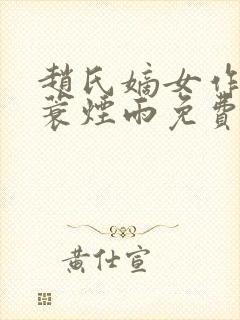 趙氏嫡女作
蓑煙雨免費
黃仕宣